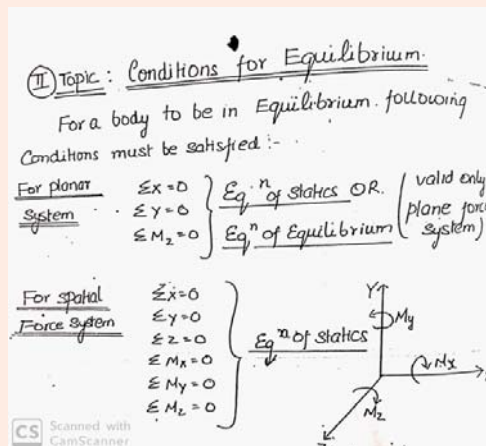 II Topic : Conditions for Equilibrium.
For a body to be in Equilibrium. following
Conditions must be satisfied :-
For planar
System
ΣX=0
ΣY=0
ΣMz=0
Eq.ⁿ of statics OR.
Eqⁿ of Equilibrium
(valid only
plane force
system)
For spatial
Force System
ΣX=0
ΣY=0
ΣZ=0
ΣMx=0
ΣMy=0
ΣMz=0
Eqⁿ of statics
Y
My
Mx
Mz
CS Scanned with
CamScanner